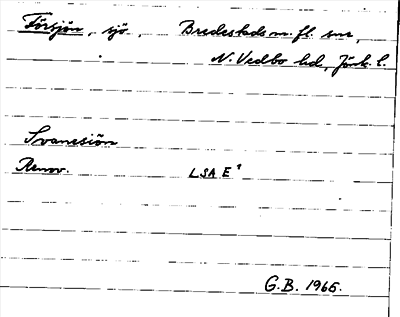 Försjön, sjö, Bredestads m. fl. snr,
N. Vedbo hd, Jönk. l.
Svanesiön
Renov. LSA E¹
G.B. 1965.